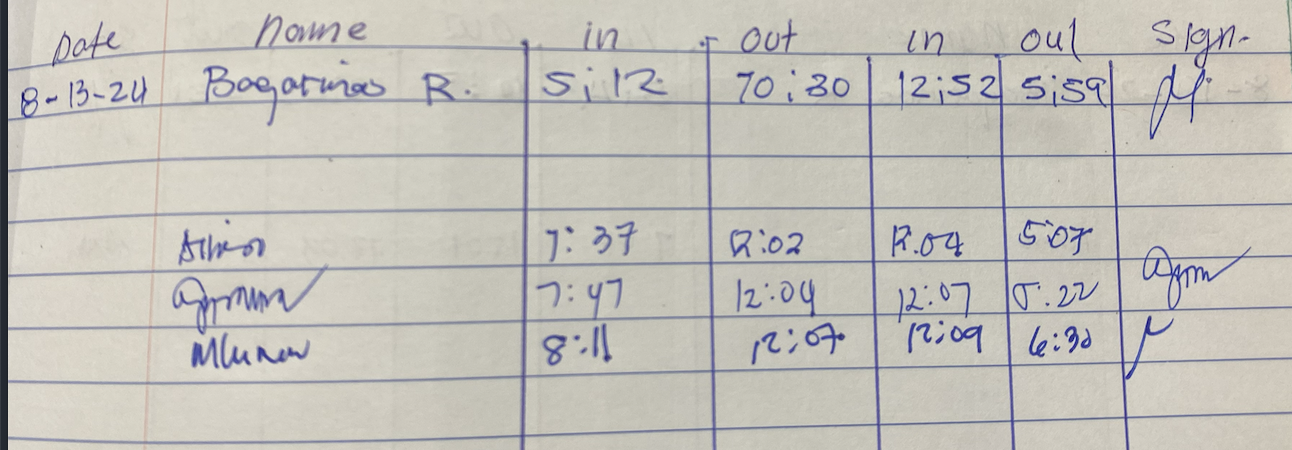 Date Name in out in out Sign.
8-13-24 Bagarinao R. 5:12 10:30 12:52 5:59
7:37 12:02 12:04 5:07
7:47 12:04 12:07 5:22
8:11 12:07 12:09 6:30